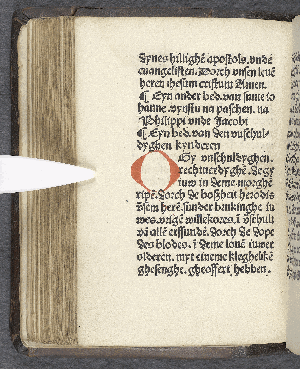 dynes hillighē apostols. vnde
euangelisten. Dorch vnsen leuē
heren ihesum cristum Amen.
¶ Eyn ander bed. van sunte io
hanne. vynstu na paschen. na
Philippi vnde Jacobi
¶ Eyn bed. van den vnschul-
dyghen kynderen
O Gy vnschuldyghen.
rechtuerdyghē. De gy
iuw in deme morghē
ripē. dorch de boszheit herodis
sunder
willekores. i
vā allē erfsunde. dorch de dope
des blodes. i deme louē iuwer
olderen. myt eineme kleghelikē
ghesenghe. gheoffert hebben.